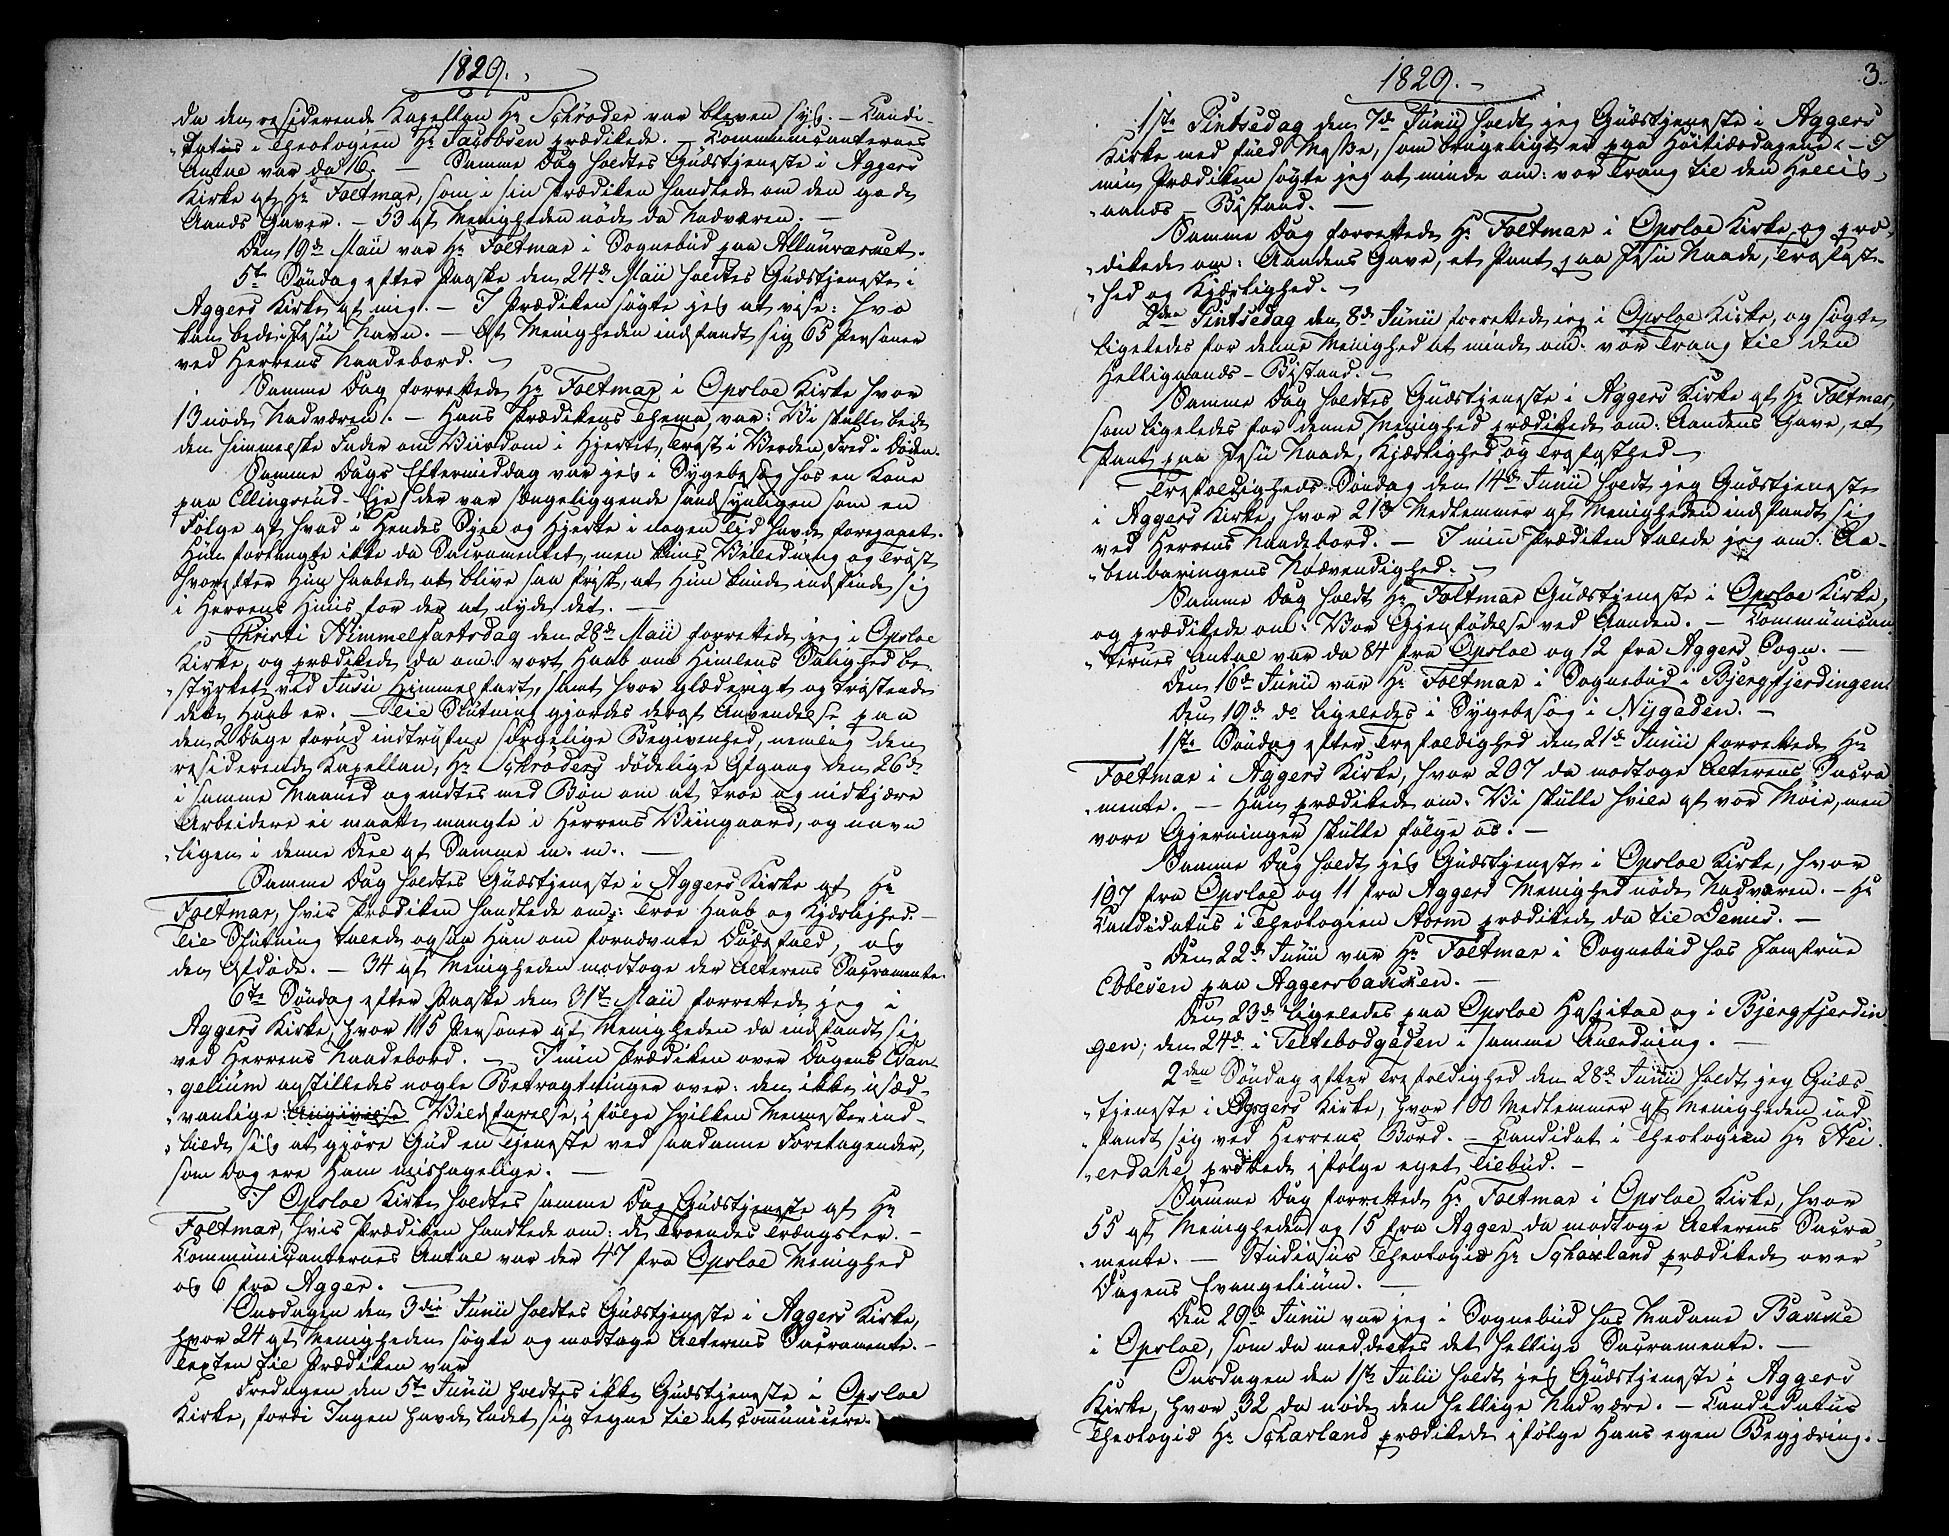 1829.
da den residerende Kapellan Hr Schrøder var bleven syg. – Candi-
datus i Theologien Hr Jacobsen prædikede. – Communicanternes
Antal var da 16. – Samme Dag holdtes Gudstjeneste i Aggers
Kirke af Hr Foltmar, som i sin Prædiken handlede om den gode
Aands Gaver. – 53 af Menigheden nøde da Nadveren. –
Den 19de Maii var Hr Foltmar i Sognebud paa Allunværnet.
5te Søndag efter Paaske den 24de Maii holdtes Gudstjeneste i
Aggers Kirke af mig. – I Prædiken søgte jeg at vise: hvo
kan bede i Jesu Navn. – Af Menigheden indfandt sig 65 Personer
ved Herrens Naadebord. –
Samme Dag forrettede Hr Foltmar i Opsloe Kirke hvor
13 nøde Nadværen. – Hans Prædikens Thema var: Vi skulle bede
den himmelske Fader om Viisdom i Hjertet, Trøst i Verden, Fred i Døden.
Samme Dags Eftermiddag var jeg i Sygebesøg hos en Kone
paa Ellingsrud-Eje der var sengeliggende sandsynligen som en
Følge af hvad i Hendes Sjel og Hjerte i nogen Tid havde foregaaet.
Hun forlangte ikke da Sacramentet, men kuns Veiledning og Trøst
hvorefter Hun haabede at blive saa frisk, at Hun kunde indfinde sig
i Herrens Huus for der at nyde det. –
Christi Himmelfartsdag den 28de Maii forrettede jeg i Opsloe
Kirke, og prædikede da om: vort Haab om Himlens Salighed be-
styrket ved Jesu Himmelfart, samt hvor glæderigt og trøstende
dette Haab er. – Til Slutning gjordes deraf Anvendelse paa
den 2 Dage forud indtrufne sørgelige Begivenhed, nemlig den
residerende Kapellan, Hr Schrøders dødelige Afgang den 26de
i samme Maaned og endtes med Bøn om at troe og nidkjære
Arbeidere ei maatte mangle i Herrens Viingaard, og navn
ligen i denne Deel af Samme m. m. –
Samme Dag holdtes Gudstjeneste i Aggers Kirke af Hr
Foltmar, hvis Prædiken handlede om: Troe Haab og Kjærlighed. –
Til Slutning talede ogsaa Han om fornævnte Dødsfald, og
den Afdøde. – 34 af Menigheden modtoge der Alterens Sacramente.
6te Søndag efter Paaske den 31te Maii forrettede jeg i
Aggers Kirke, hvor 115 Personer af Menigheden da indfandt sig
ved Herrens Naadebord. – I min Prædiken over Dagens Evan-
gelium anstilledes nogle Betragtninger over: den ikke usæd-
vanlige Angivelse Vildfarelse, ifølge hvilken Mennesker ind-
bilde sig at gjøre Gud en Tjeneste ved saadanne Foretagender,
som dog ere Ham mishagelige. –
I Opsloe Kirke holdtes samme Dag Gudstjeneste af Hr
Foltmar, hvis Prædiken handlede om: de Troendes Trængsler. –
Communicanternes Antal var der 47 fra Opsloe Menighed
og 6 fra Agger. –
Onsdagen den 3die Junii holdtes Gudstjeneste i Aggers Kirke,
hvor 24 af Menigheden søgte og modtoge Alterens Sacramente. –
Texten til Prædiken var
Fredagen den 5te Junii holdtes ikke Gudstjeneste i Opsloe
Kirke, fordi Ingen havde ladet sig tegne til at communicere.
1829. –
3.
1ste Pintsedag den 7de Junii holdt jeg Gudstjeneste i Aggers
Kirke med fuld Messe, som brugeligt er paa Høitidsdagene. – I
min Prædiken søgte jeg at minde om: vor Trang til den Hellig-
aands-Bistand. –
Samme Dag forrettede Hr Foltmar i Opsloe Kirke og præ-
dikede om: Aandens Gave, et Pant paa Jesu Naade, Trofast-
hed og Kjærlighed. –
2den Pintsedag den 8de Junii forrettede jeg i Opsloe Kirke, og søgte
ligeledes for denne Menighed at minde om: vor Trang til den
Helligaands-Bistand. –
Samme Dag holdtes Gudstjeneste i Aggers Kirke af Hr Foltmar,
som ligeledes for denne Menighed prædikede om: Aandens Gave, et
Pant paa Jesu Naade, Kjærlighed og Trofasthed –
Trefoldigheds-Søndag den 14de Junii holdt jeg Gudstjeneste
i Aggers Kirke, hvor 213 Medlemmer af Menigheden indfandt sig
ved Herrens Naadebord. – I min Prædiken talede jeg om: Aa-
benbaringens Nødvendighed. –
Samme Dag holdt Hr Foltmar Gudstjeneste i Opsloe Kirke,
og prædikede om: Vor Gjenfødelse ved Aanden. – Communican-
ternes Antal var da 84 fra Opsloe og 12 fra Aggers Sogn. –
Den 16de Junii var Hr Foltmar i Sognebud i Bjergfjerdingen.
Den 19de do ligeledes i Sygebesøg i Nygaden. –
1ste Søndag efter Trefoldighed den 21de Junii forrettede Hr
Foltmar i Aggers Kirke, hvor 207 da modtoge Alterens Sacra-
mente. – Han prædikede om: Vi skulle hvile af vor Møie, men
vore Gjerninger skulle følge os. –
Samme Dag holdt jeg Gudstjeneste i Opsloe Kirke, hvor
107 fra Opsloe og 11 fra Aggers Menighed nøde Nadværen. – Hr
Candidatus i Theologien Storm prædikede da til Demis. –
Den 22de Junii var Hr Foltmar i Sognebud hos Jomfrue
Ebbesen paa Aggersbakken. –
Den 23de ligeledes paa Opsloe Hospital og i Bjergfjerdin
gen; den 24de i Teltebodgaden i samme Anledning. –
2den Søndag efter Trefoldighed den 28de Junii holdt jeg Guds-
tjeneste i Aggers Kirke, hvor 100 Medlemmer af Menigheden ind-
fandt sig ved Herrens Bord. – Candidat i Theologien Hr Hei-
erdahl prædikede ifølge eget Tilbud. –
Samme Dag forrettede Hr Foltmar i Opsloe Kirke, hvor
55 af Menigheden og 15 fra Agger da modtoge Alterens Sacra-
mente. – Studiosus Theologiæ Hr Scharland prædikede over
Dagens Evangelium. –
Den 29de Junii var jeg i Sognebud hos Madame Bakke
i Opsloe, som da meddeeltes det hellige Sacramente. –
Onsdagen den 1ste Julii holdt jeg Gudstjeneste i Aggers
Kirke, hvor 32 da nøde den hellige Nadvere. – Candidatus
Theologiæ Hr Scharland prædikede ifølge Hans egen Begjæring. –